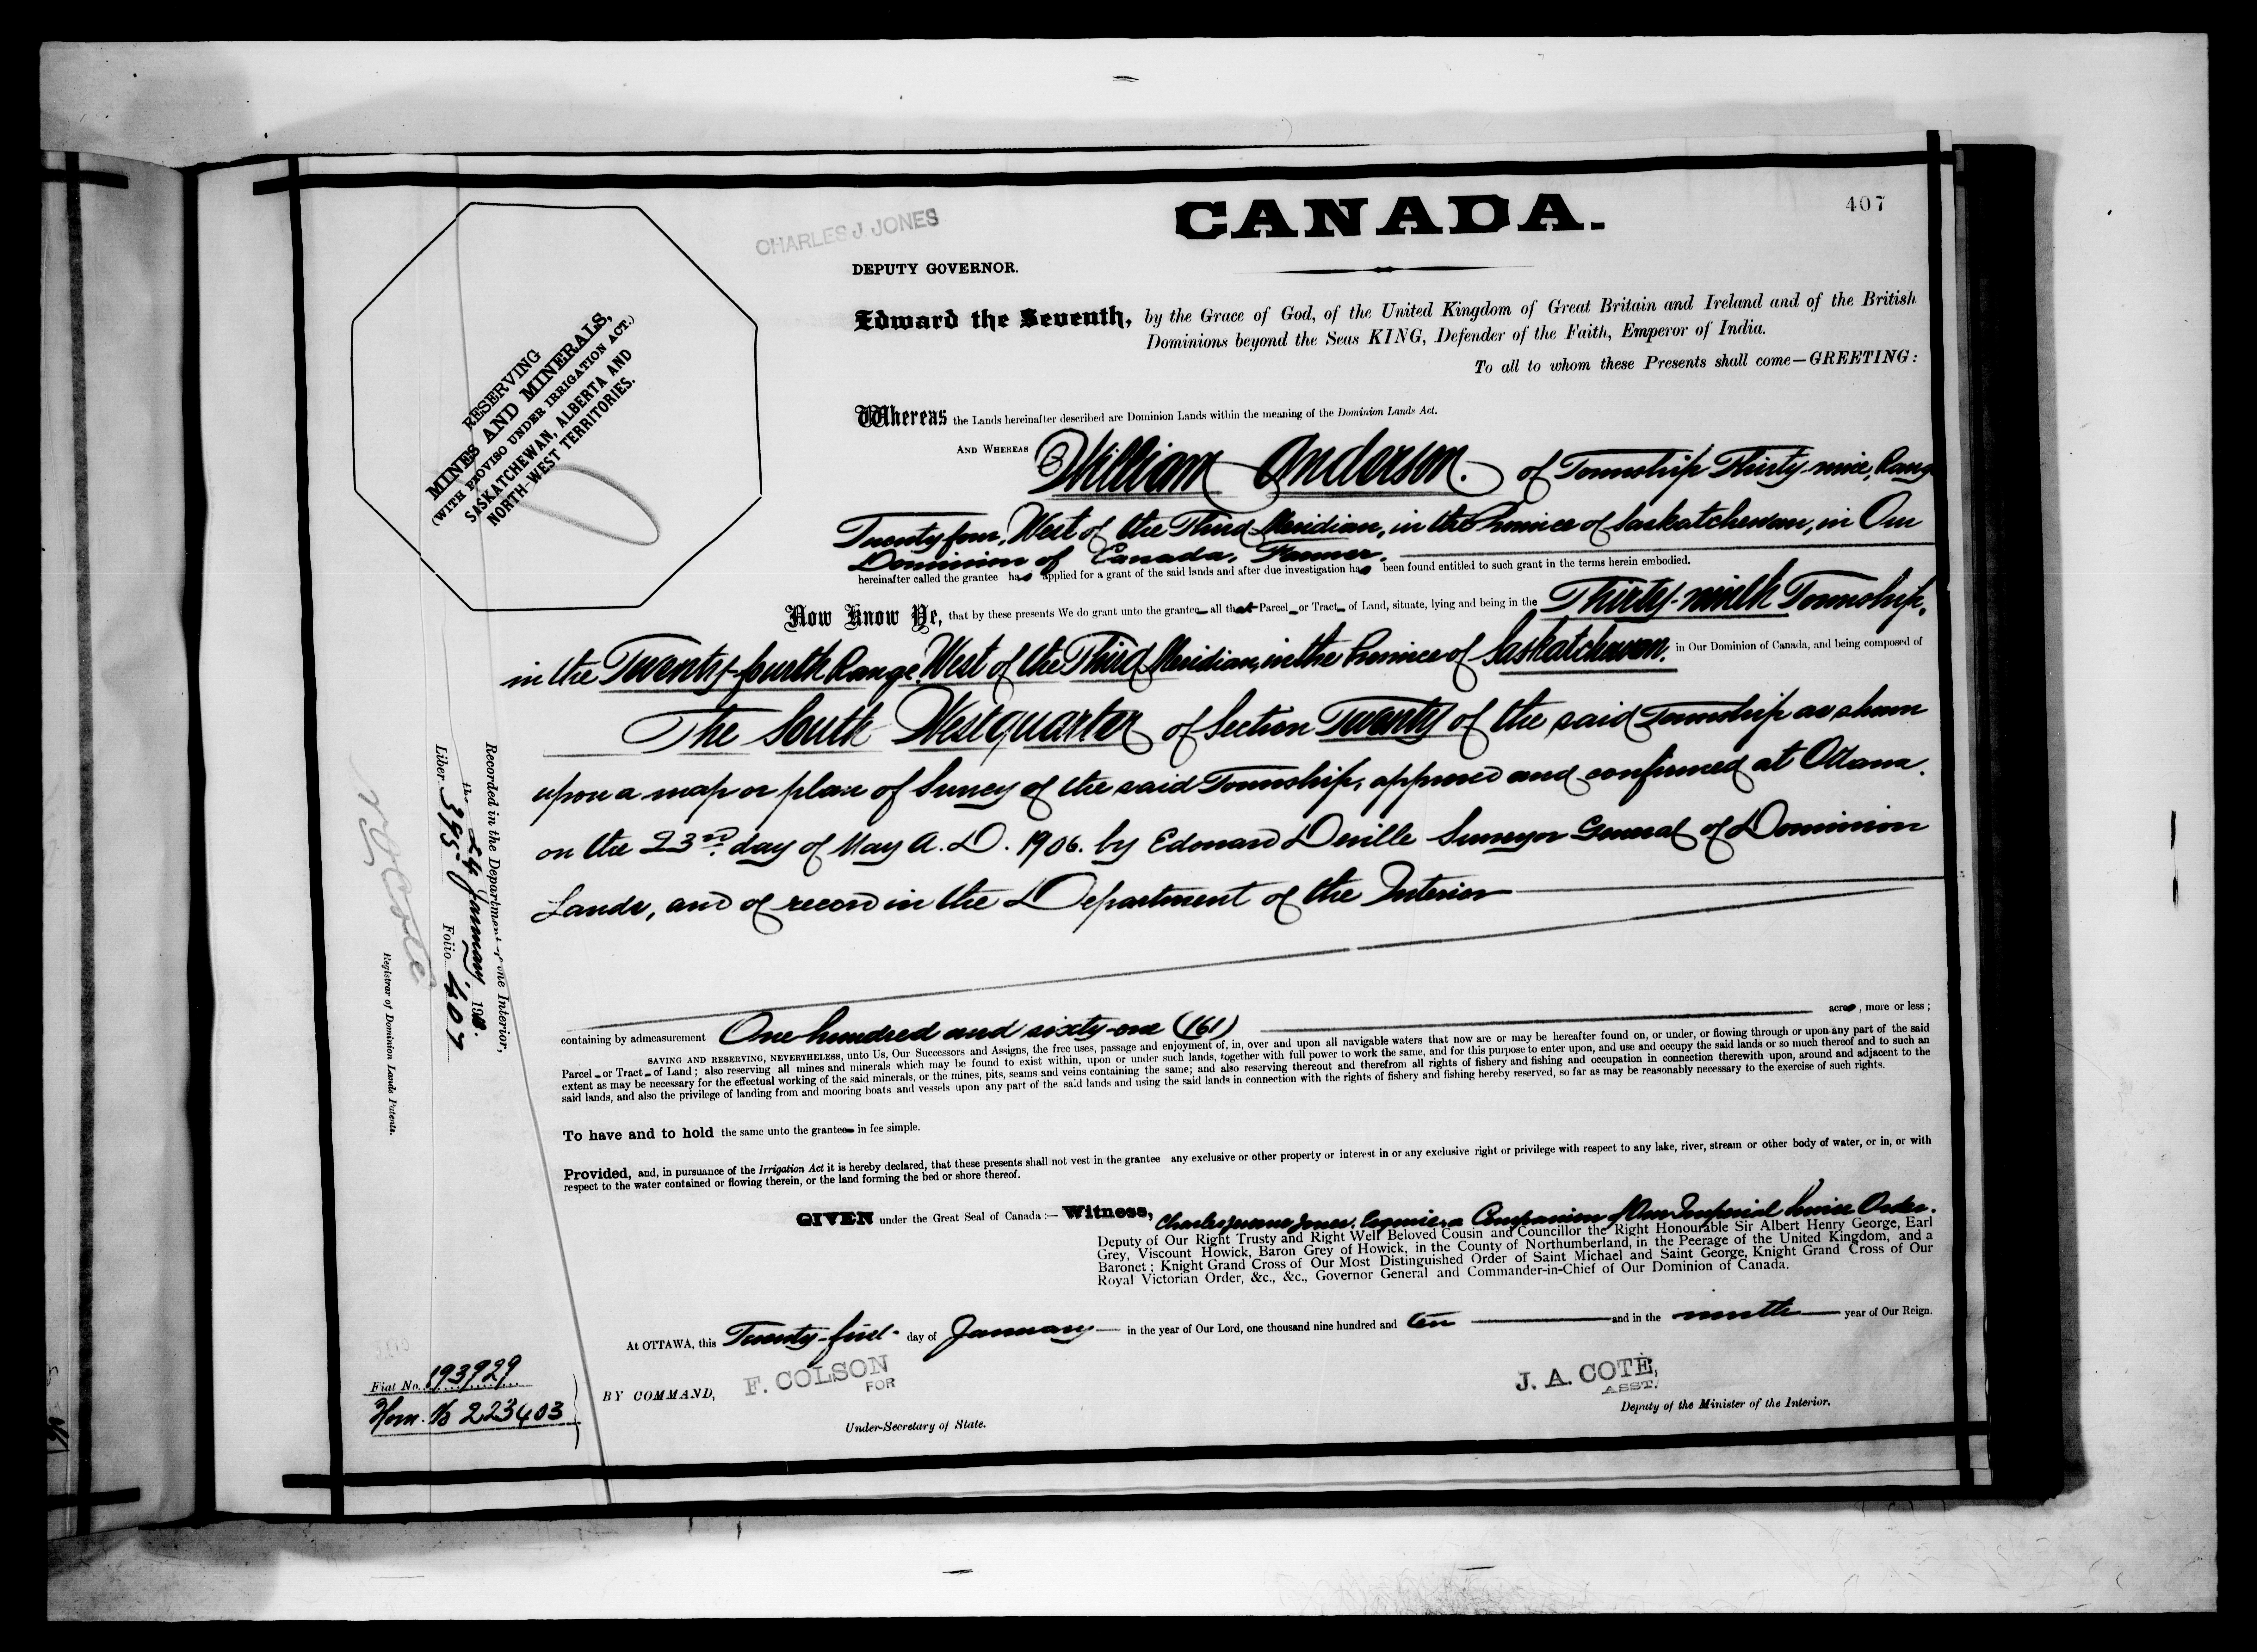 407
CANADA.
CHARLES J. JONES
DEPUTY GOVERNOR.
Edward the Seventh, by the Grace of God, of the United Kingdom of Great Britain and Ireland and of the British
Dominions beyond the Seas KING, Defender of the Faith, Emperor of India.
To all to whom these Presents shall come—GREETING:
RESERVING
MINES AND MINERALS,
(WITH PROVISO UNDER IRRIGATION ACT.)
SASKATCHEWAN, ALBERTA AND
NORTH-WEST TERRITORIES.
Whereas the Lands hereinafter described are Dominion Lands within the meaning of the Dominion Lands Act.
AND WHEREAS William Anderson. of Township Thirty-nine, Range
Twenty four, West of the Third Meridian, in the Province of Saskatchewan, in Our
Dominion of Canada, Farmer.
hereinafter called the grantee has applied for a grant of the said lands and after due investigation has been found entitled to such grant in the terms herein embodied.
Now Know Ye, that by these presents We do grant unto the grantee all that Parcel or Tract of Land, situate, lying and being in the Thirty-ninth Township,
in the Twenty-fourth Range, West of the Third Meridian, in the Province of Saskatchewan, in Our Dominion of Canada, and being composed of
The South West quarter of Section Twenty of the said Township as shown
upon a map or plan of Survey of the said Township, approved and confirmed at Ottawa.
on the 23rd day of May A.D. 1906. by Edouard Deville Surveyor General of Dominion
Lands, and of record in the Department of the Interior
containing by admeasurement One hundred and sixty-one (161) acres, more or less;
SAVING AND RESERVING, NEVERTHELESS, unto Us, Our Successors and Assigns, the free uses, passage and enjoyment of, in, over and upon all navigable waters that now are or may be hereafter found on, or under, or flowing through or upon any part of the said
Parcel or Tract of Land; also reserving all mines and minerals which may be found to exist within, upon or under such lands, together with full power to work the same, and for this purpose to enter upon, and use and occupy the said lands or so much thereof and to such an
extent as may be necessary for the effectual working of the said minerals, or the mines, pits, seams and veins containing the same; and also reserving thereout and therefrom all rights of fishery and fishing and occupation in connection therewith upon, around and adjacent to the
said lands, and also the privilege of landing from and mooring boats and vessels upon any part of the said lands and using the said lands in connection with the rights of fishery and fishing hereby reserved, so far as may be reasonably necessary to the exercise of such rights.
To have and to hold the same unto the grantee in fee simple.
Provided, and, in pursuance of the Irrigation Act it is hereby declared, that these presents shall not vest in the grantee any exclusive or other property or interest in or any exclusive right or privilege with respect to any lake, river, stream or other body of water, or in, or with
respect to the water contained or flowing therein, or the land forming the bed or shore thereof.
GIVEN under the Great Seal of Canada:— Witness, Charles Jones, Esquire, a Companion of Our Imperial Service Order.
Deputy of Our Right Trusty and Right Well Beloved Cousin and Councillor the Right Honourable Sir Albert Henry George, Earl
Grey, Viscount Howick, Baron Grey of Howick, in the County of Northumberland, in the Peerage of the United Kingdom, and a
Baronet; Knight Grand Cross of Our Most Distinguished Order of Saint Michael and Saint George, Knight Grand Cross of Our
Royal Victorian Order, &c., &c., Governor General and Commander-in-Chief of Our Dominion of Canada.
At OTTAWA, this Twenty-first day of January in the year of Our Lord, one thousand nine hundred and ten and in the ninth year of Our Reign.
BY COMMAND,
F. COLSON
FOR
Under-Secretary of State.
J. A. COTÉ,
ASST.
Deputy of the Minister of the Interior.
Recorded in the Department of the Interior,
the 24 January, 1910.
Liber 395 Folio 407
Registrar of Dominion Lands Patents.
Fiat No. 193929
Hom. No 223403